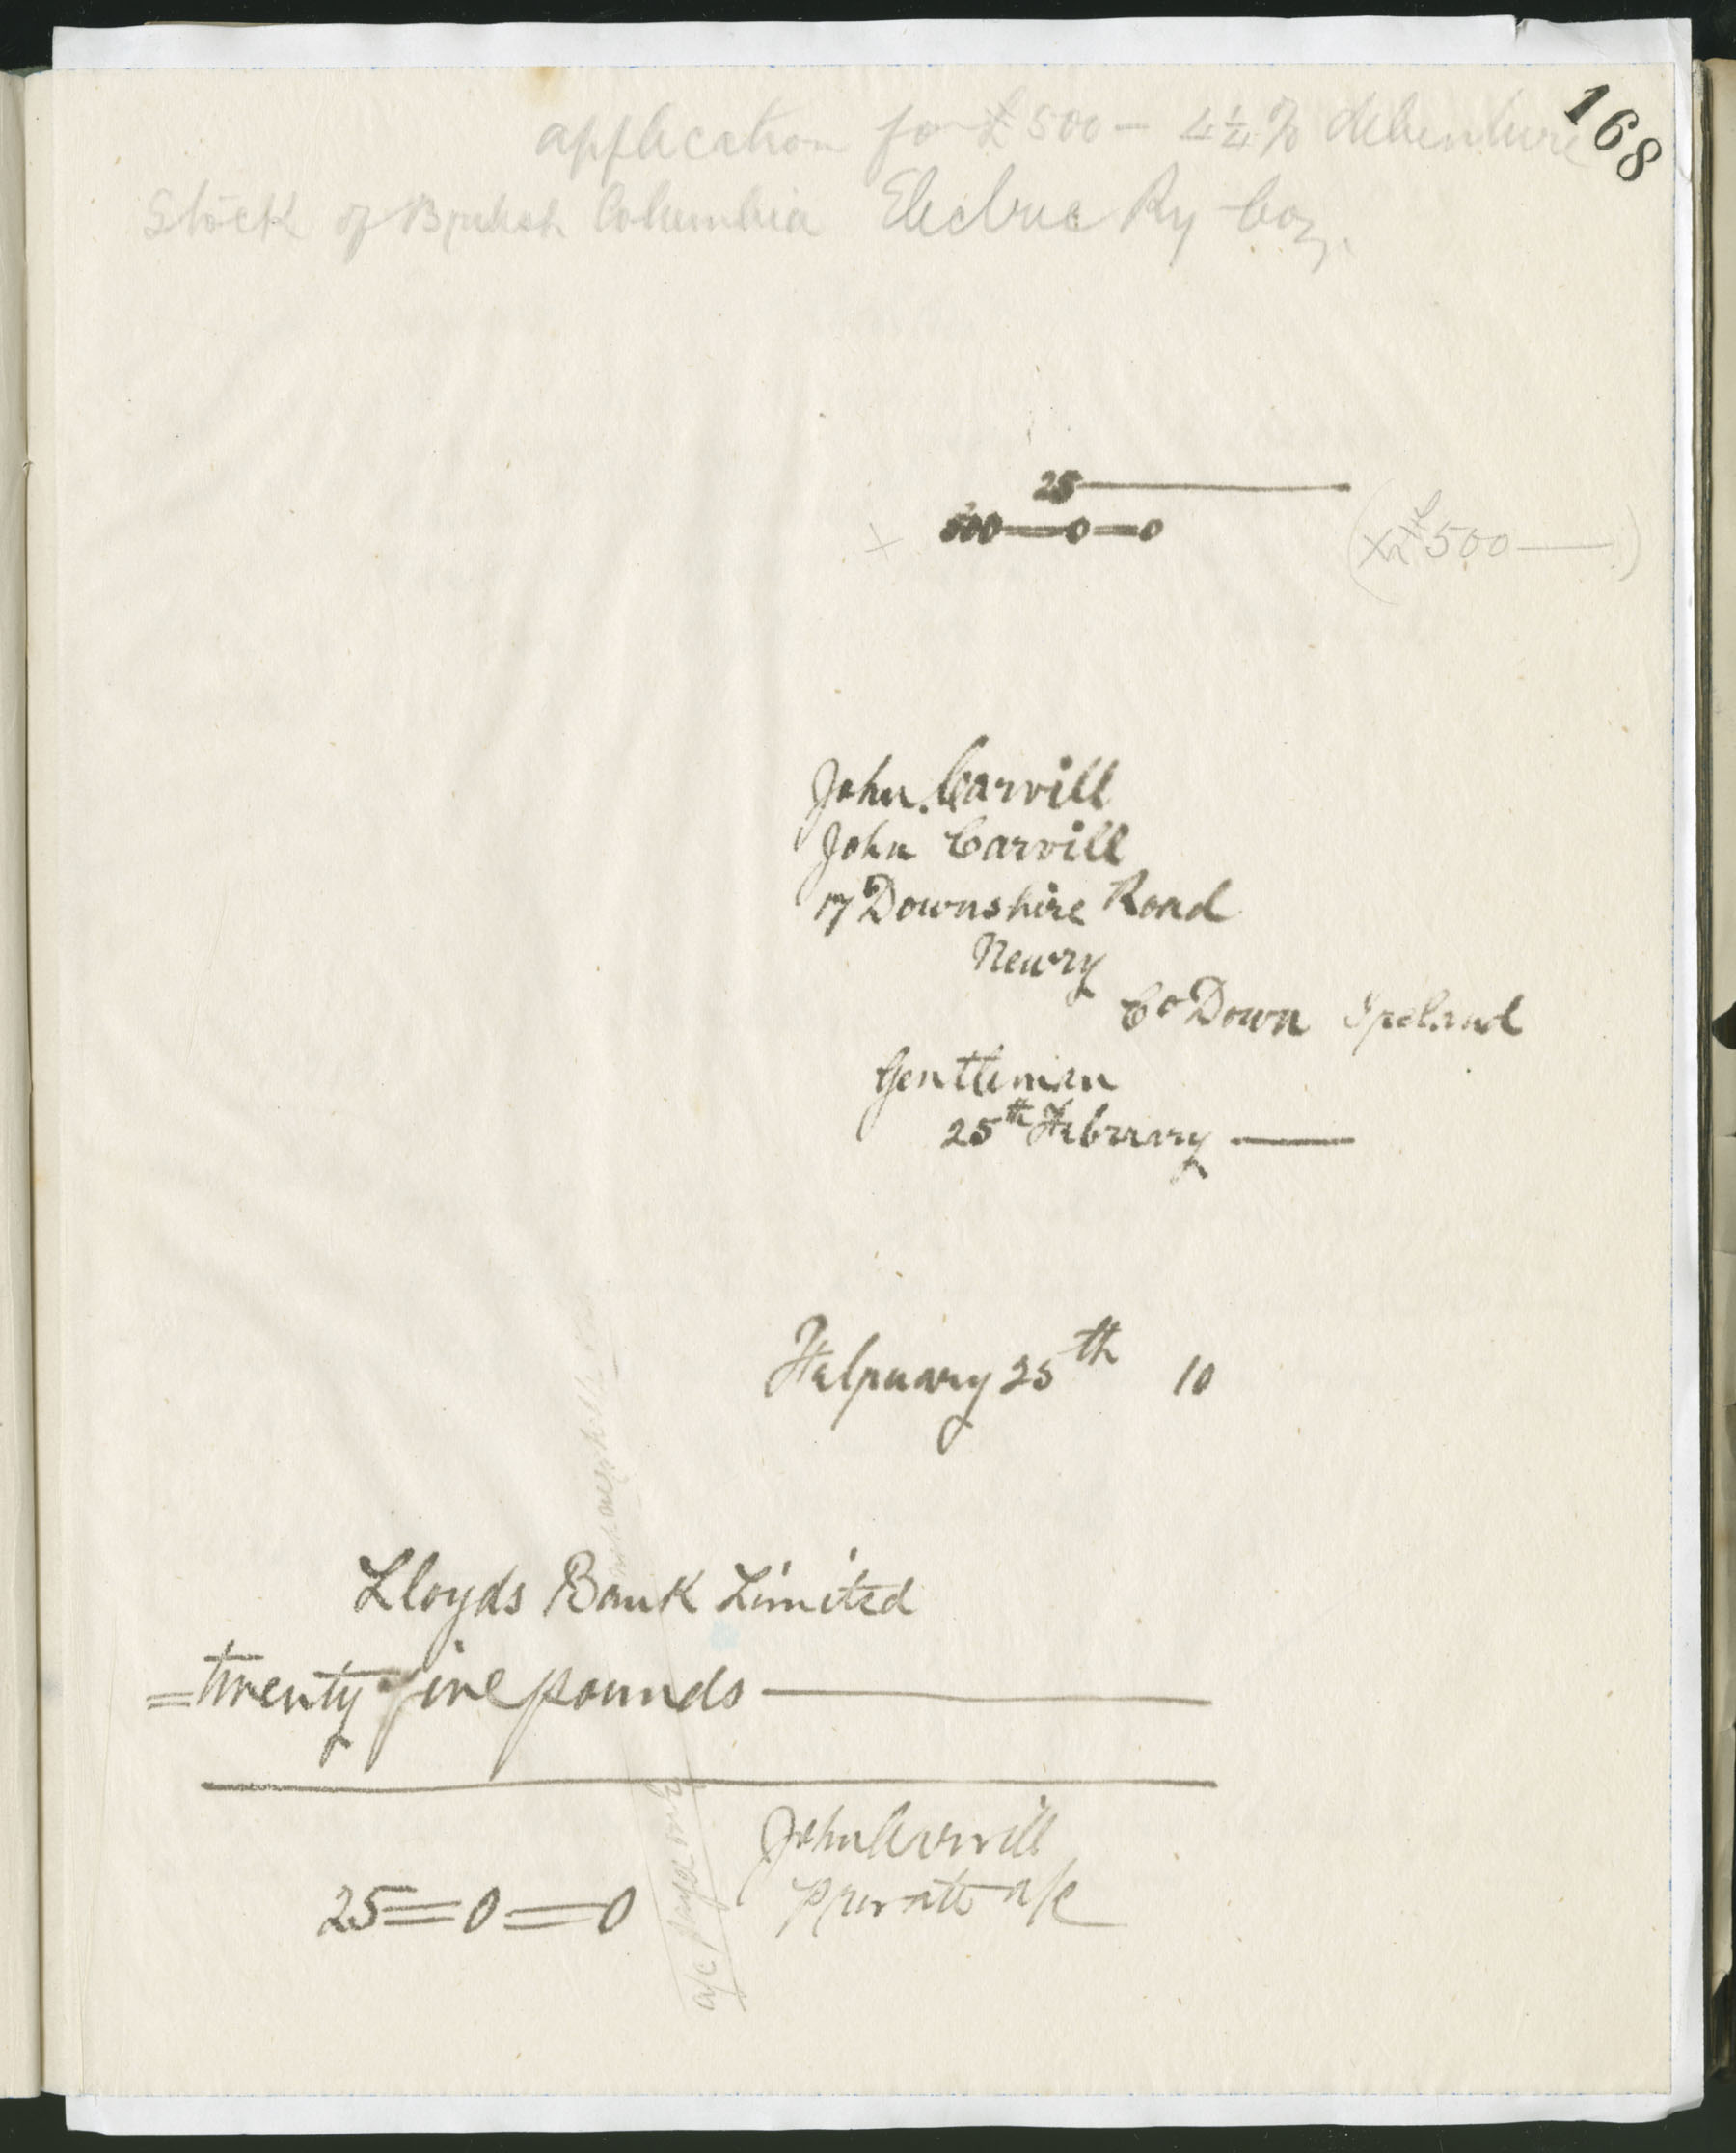 168
application for £500 — 4¼% debenture
Stock of British Columbia Electric Ry Coy.
25 ——
500 — 0 — 0
£500 ——
John Carvill
John Carvill
17 Downshire Road
Newry
Co Down Ireland
Gentleman
25th February ——
February 25th 10
Lloyds Bank Limited
= twenty five pounds ——
John Carvill
private a/c
25 = 0 = 0
a/c payee only